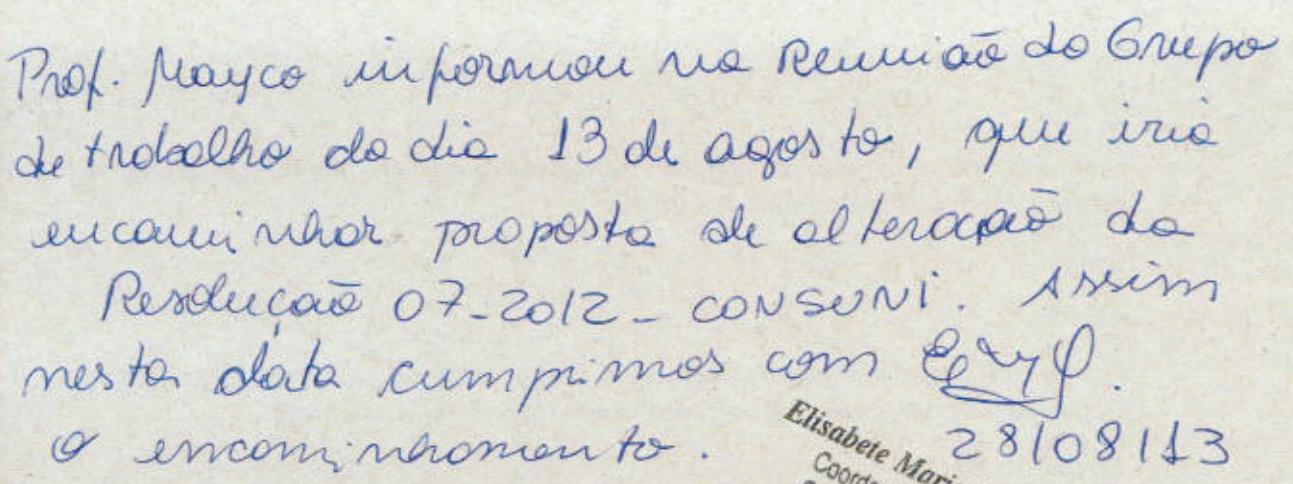 Prof. Mayco informou na Reunião do Grupo
de trabalho do dia 13 de agosto, que iria
encaminhar proposta de alteração da
Resolução 07-2012 - CONSUNI. Assim
nesta data cumprimos com
o encaminhamento. 28/08/13
Elisabete Mari
Coorde